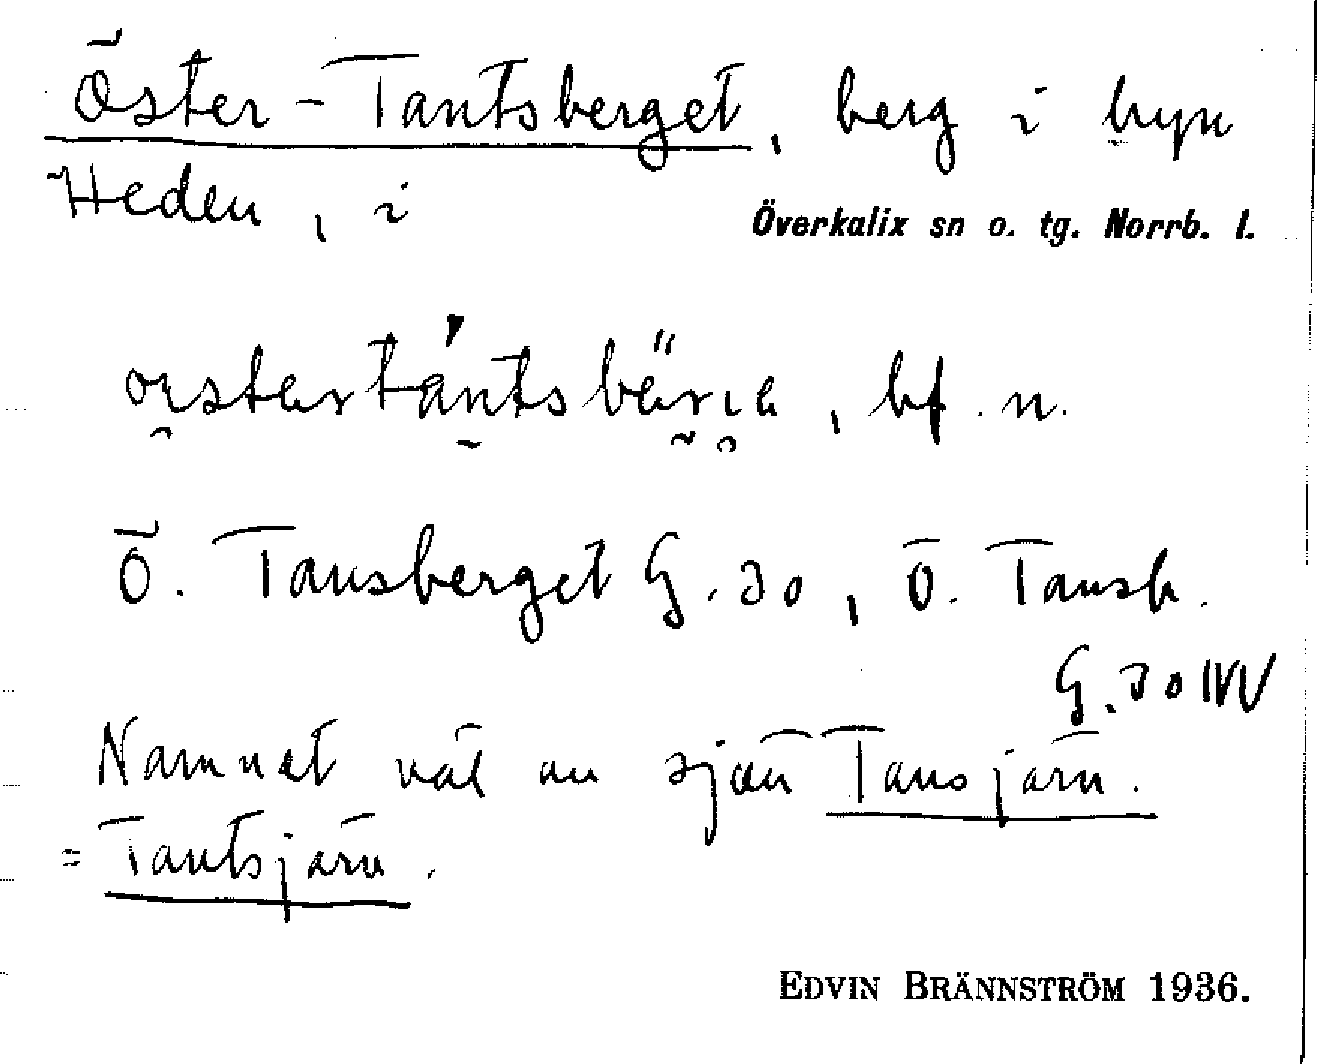 Öster-Tantsberget, berg i byn
Heden, i
Överkalix sn o. tg. Norrb. l.
bf. n.
Ö. Tansberget G. 30, Ö. Tansb.
G. 30 NV
Namnet väl av sjön Tansjärn.
= Tantsjärn.
EDVIN BRÄNNSTRÖM 1936.